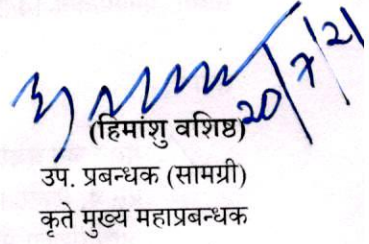 20/7/21
(हिमांशु वशिष्ठ)
उप. प्रबन्धक (सामग्री)
कृते मुख्य महाप्रबन्धक